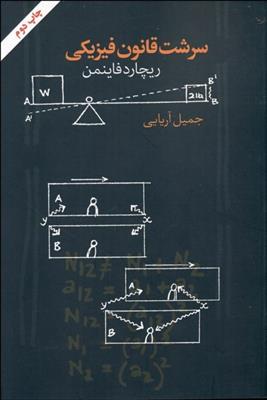 چاپ دوم
سرشت قانون فیزیکی
ریچارد فاینمن
W
B'
A
2 lb
B
A'
جمیل آریایی
A
y
x
B
A
y
x
B
N12 ≠ N1 + N2
a12 = a1 + a2
N12 = (a12)²
N1 = (a1)²
N2 = (a2)²